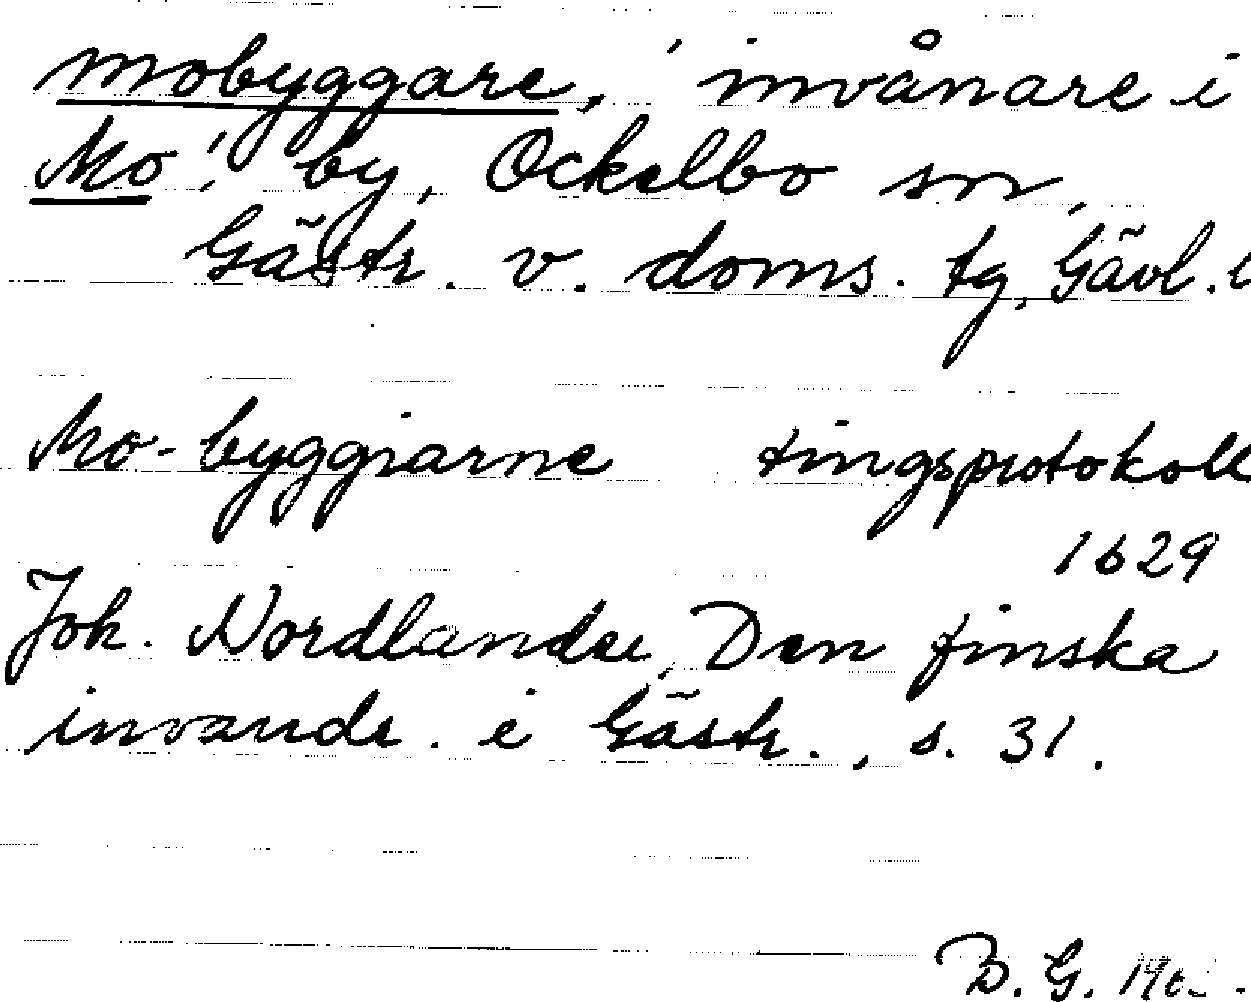 mobyggare, 'invånare i
Mo', by, Ockelbo sn,
Gästr. v. doms. tg, Gävl.
Mo-byggiarne tingsprotokoll
1629
Joh. Nordlander, Den finska
invandr. i Gästr., s. 31.
B. G.